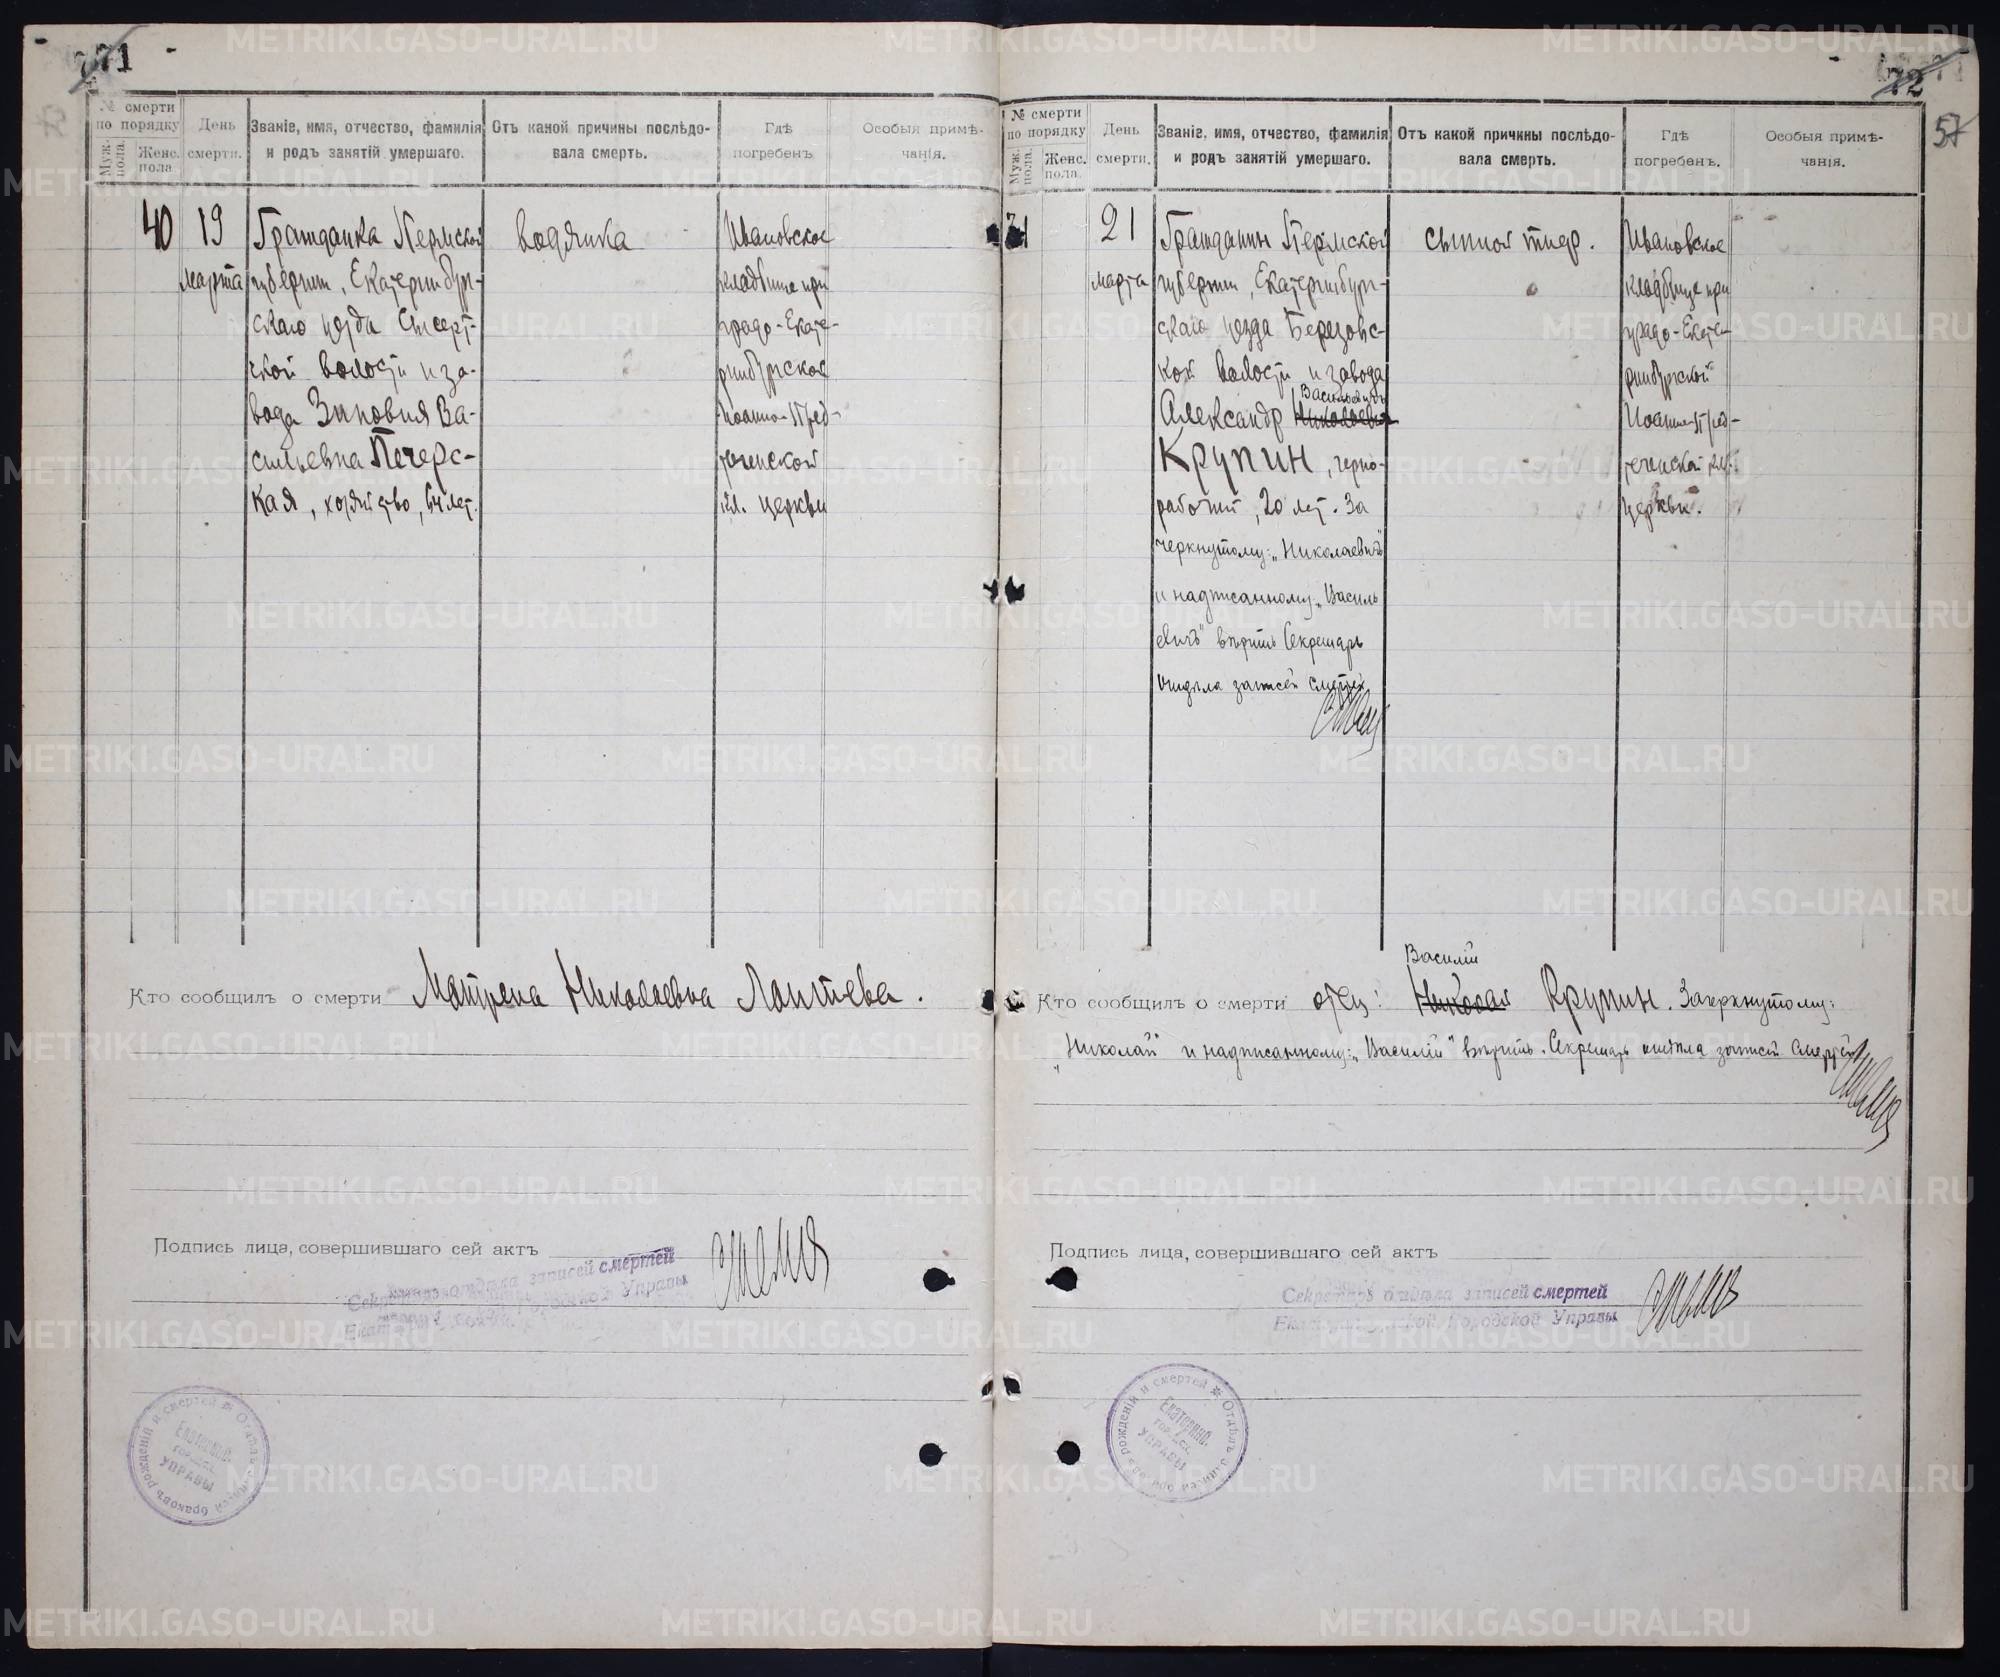 71
№ смерти
по порядку
Муж. пола.
Женс. пола
День смерти.
Званіе, имя, отчество, фамилія
и родъ занятій умершаго.
Отъ какой причины послѣдо-
вала смерть.
Гдѣ
погребенъ
Особыя примѣ-
чанія.
40
19
марта
Гражданка Пермской
губернии, Екатеринбур-
скаго уезда Сысерт-
ской волости и за-
вода Зиновия Ва-
сильевна Печерс-
кая, хозяйство, 64 лет.
водянка
Ивановское
кладбище при
градо-Екате-
ринбурской
Иоанно-Пред-
теченской
кл. церкви
Кто сообщилъ о смерти Матрена Николаевна Лаптева.
Подпись лица, совершившаго сей актъ
Секретарь отдѣла записей смертей
Екатеринбургской Городской Управы
Отдѣлъ записей браковъ рожденій и смертей
Екатеринб.
городск.
УПРАВЫ
72
57
№ смерти
по порядку
Муж. пола.
Женс. пола.
День
смерти.
Званіе, имя, отчество, фамилія
и родъ занятій умершаго.
Отъ какой причины послѣдо-
вала смерть.
Гдѣ
погребенъ.
Особыя примѣ-
чанія.
21
марта
Гражданин Пермской
губернии, Екатеринбур-
скаго уезда Березовс-
кой волости и завода
Васильевичъ
Александр Николаевич
Крупин, черно-
рабочий, 20 лет. За
черкнутому: „Николаевичъ"
и надписанному: „Василь
евичъ" вѣрить Секретарь
отдѣла записей смертей
сыпной тиф.
Ивановское
кладбище при
градо-Екате-
ринбурской
Иоанно-Пред-
теченской кл.
церкви.
Василій
Кто сообщилъ о смерти отец: Николай Крупин. Зачеркнутому:
„Николай" и надписанному: „Василій" вѣрить. Секретарь отдѣла записей смертей
Подпись лица, совершившаго сей актъ
Секретарь отдѣла записей смертей
Екатеринбургской Городской Управы
Отдѣлъ записей браковъ рожденій и смертей
Екатеринб.
городск.
УПРАВЫ
METRIKI.GASO-URAL.RU